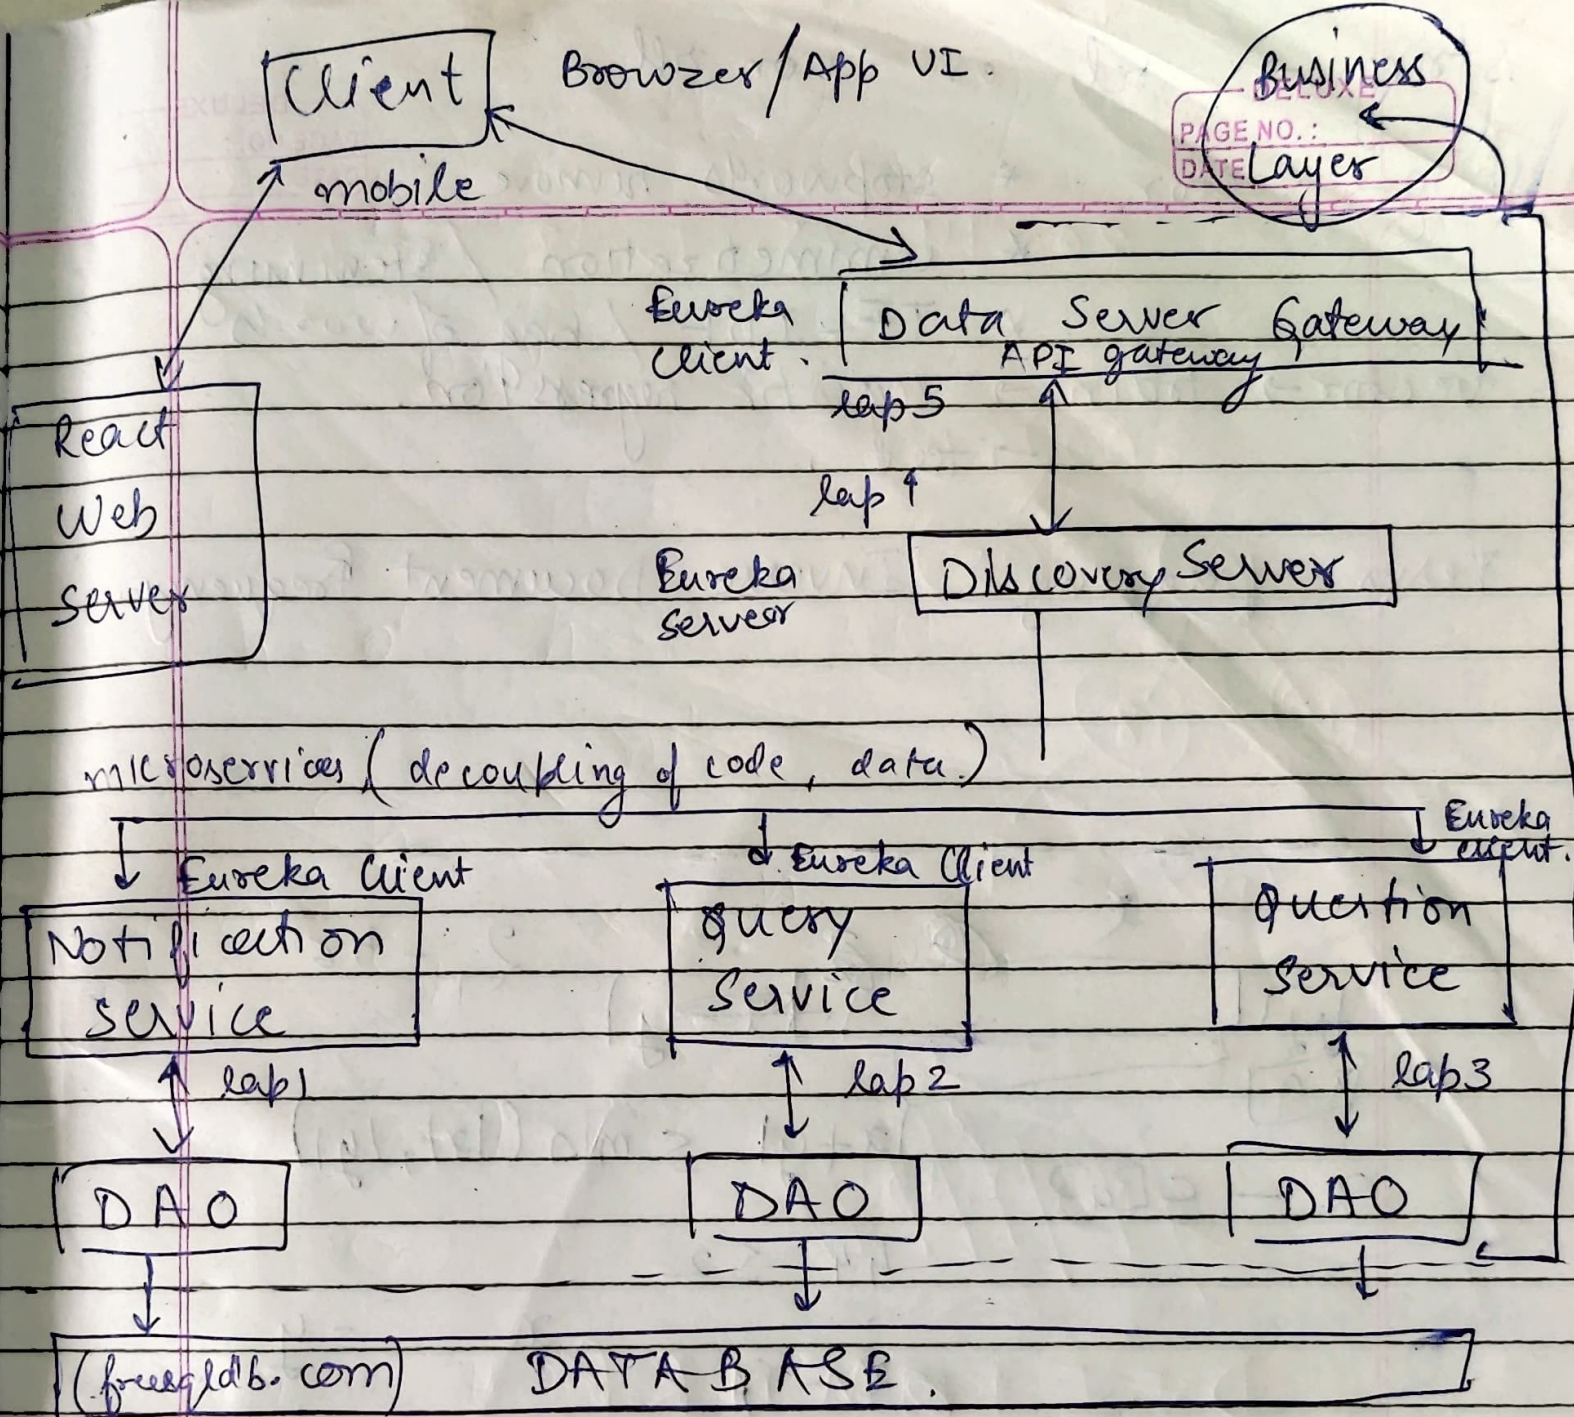 Client
Browzer/App UI.
Business
DELUXE
PAGE NO.:
DATE
Layer
mobile
Eureka
Client.
Data Server Gateway
API gateway
lap 5
React
Web
Server
lap 4
Eureka
Server
Discovery Server
microservices (decoupling of code, data.)
Eureka Client
Eureka Client
Eureka
client.
Notification
Service
Query
Service
Question
Service
lap 1
lap 2
lap 3
DAO
DAO
DAO
(freesqldb.com) DATABASE.